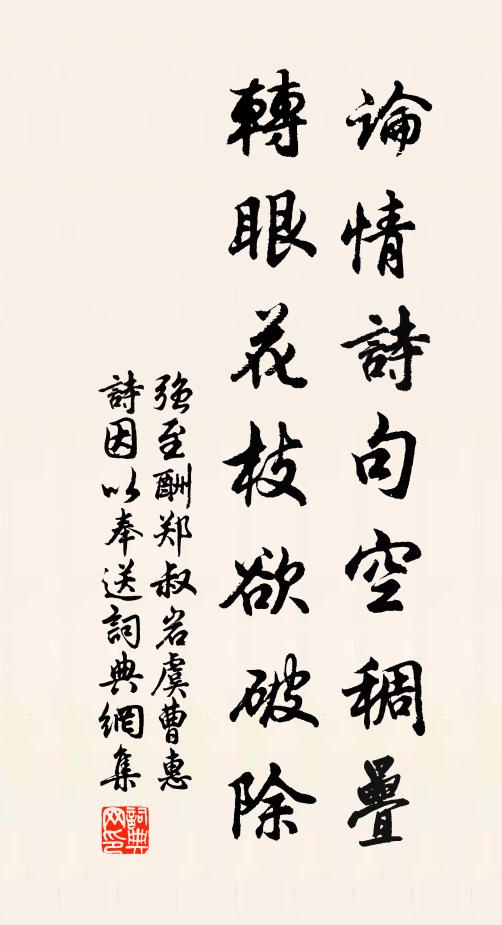 論情詩句空稠疊
轉眼花枝欲破除
強至酬郑叔岩虞曹惠
詩因以奉送詞典網集
詞典網印